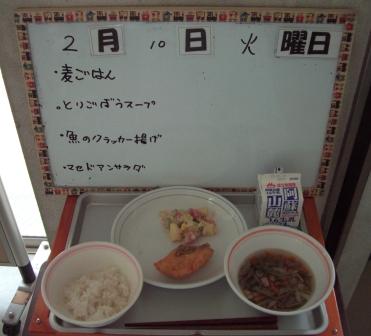 2 月 10 日 火 曜日
・麦ごはん
・とりごぼうスープ
・魚のクラッカー揚げ
・マセドアンサラダ
阿蘇
小国
牛乳